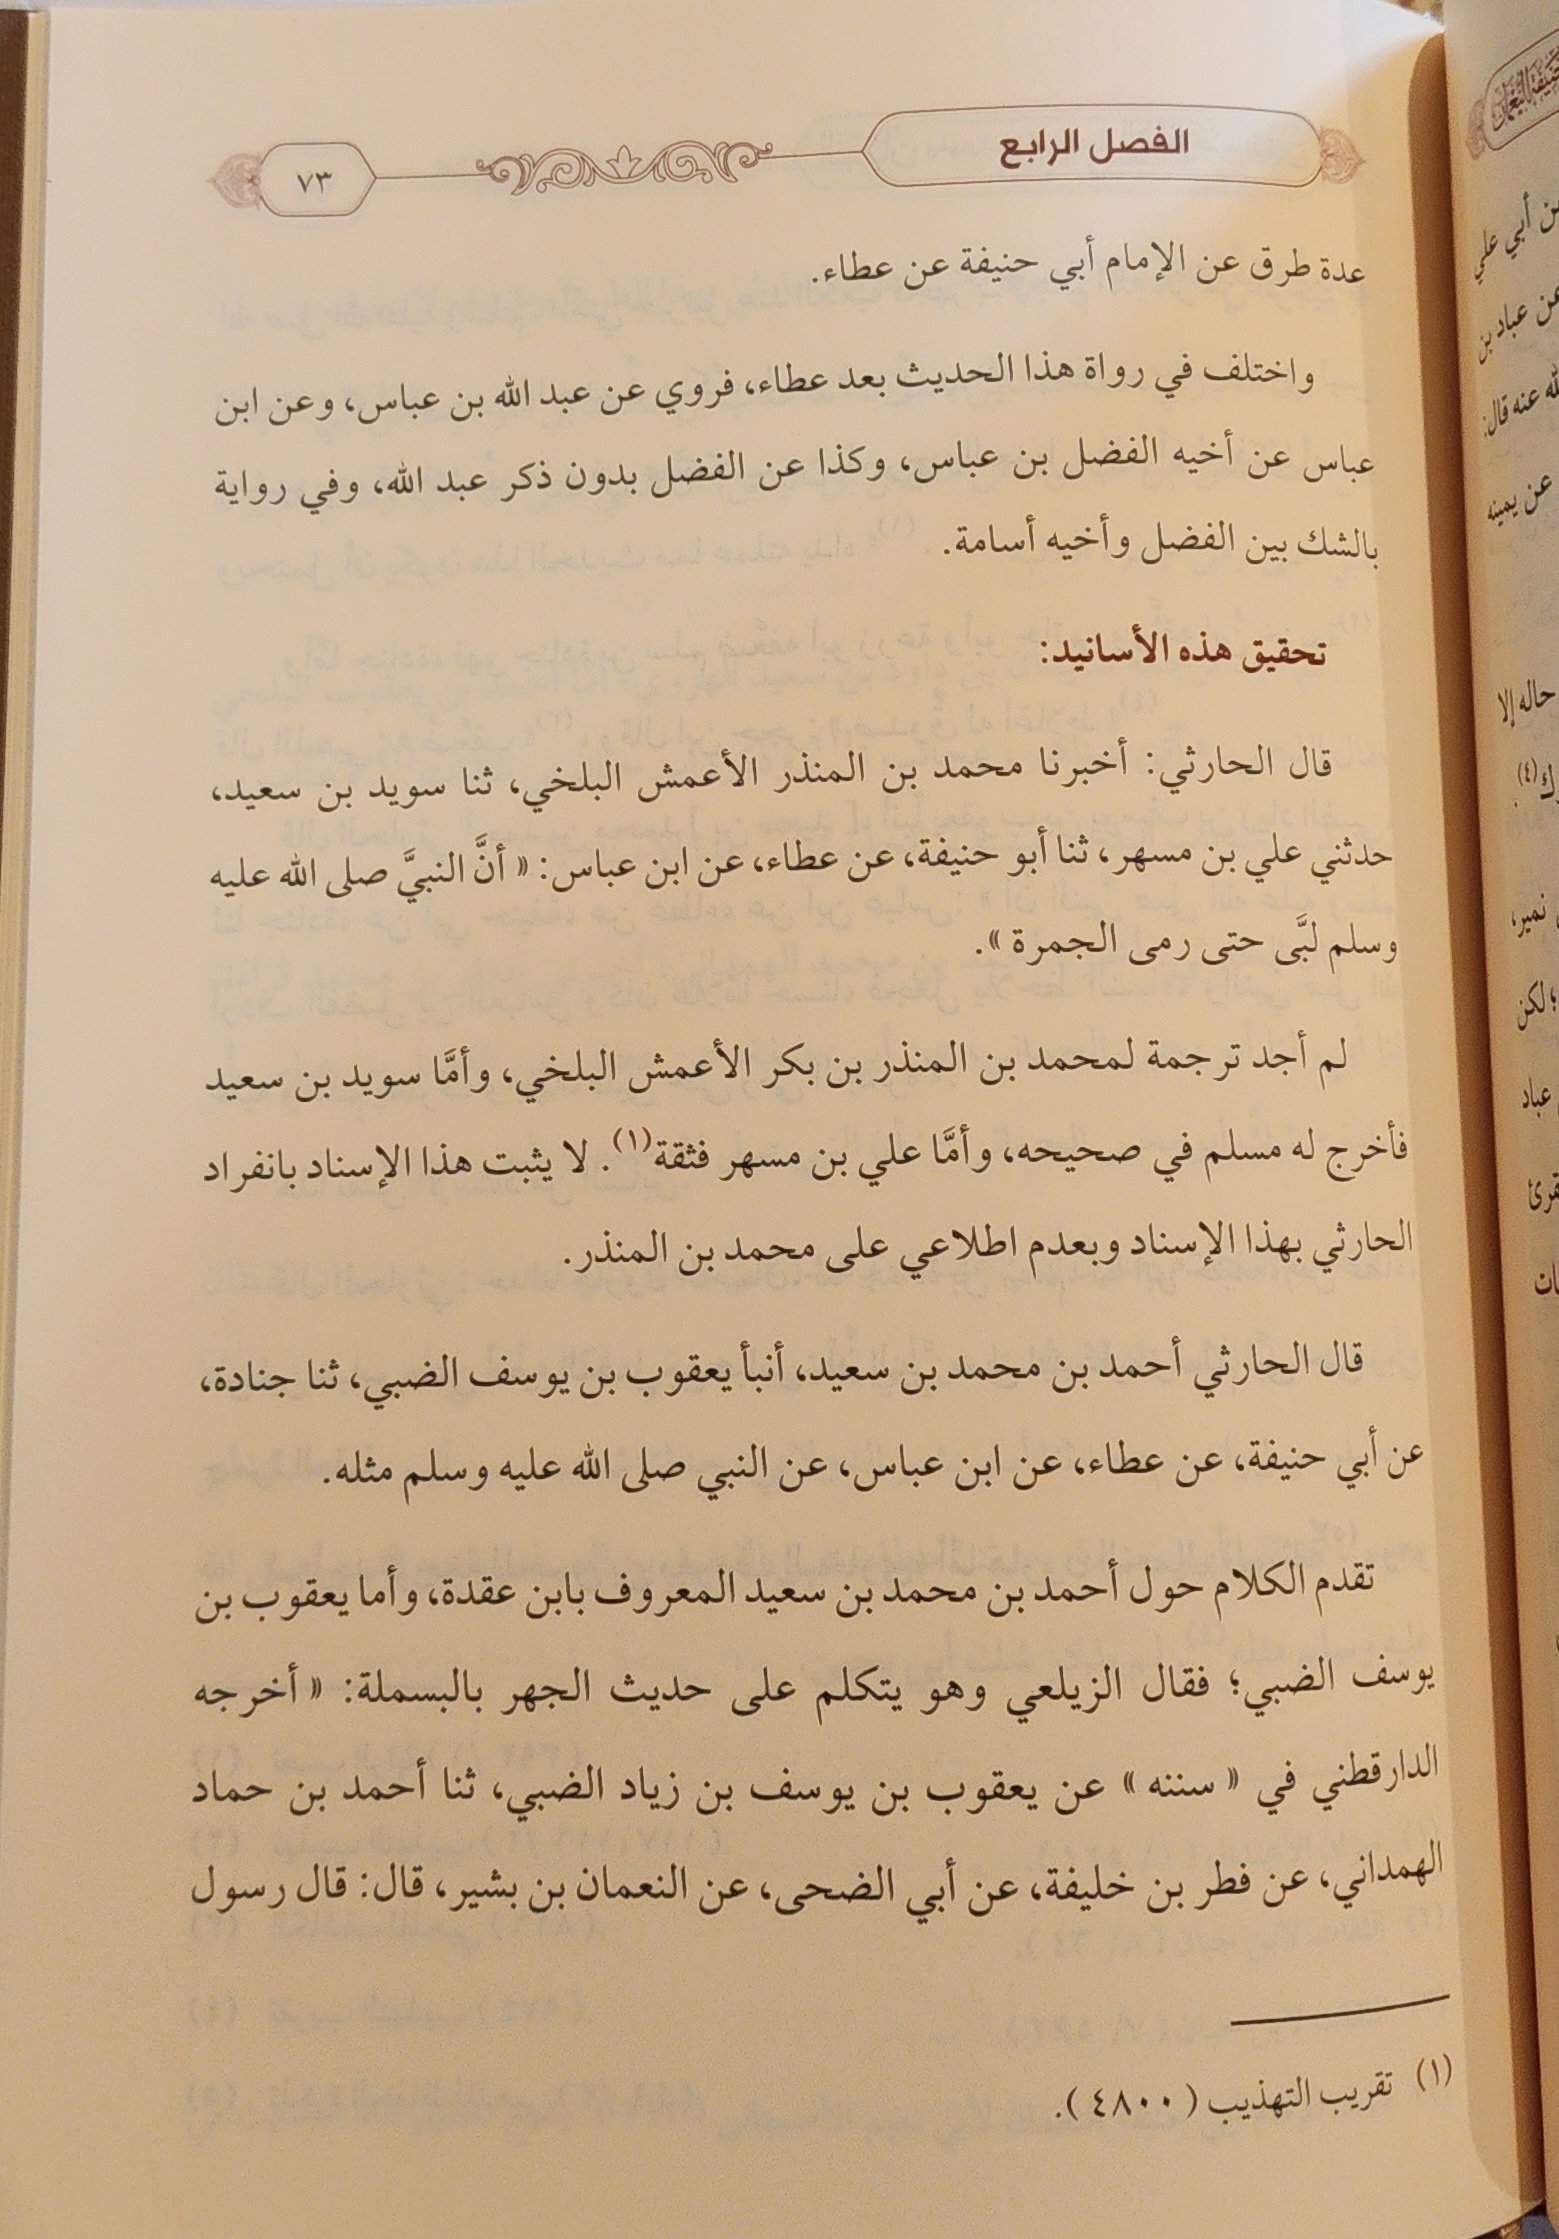 الفصل الرابع
٧٣
عدة طرق عن الإمام أبي حنيفة عن عطاء.
واختلف في رواة هذا الحديث بعد عطاء، فروي عن عبد الله بن عباس، وعن ابن
عباس عن أخيه الفضل بن عباس، وكذا عن الفضل بدون ذكر عبد الله، وفي رواية
بالشك بين الفضل وأخيه أسامة.
تحقيق هذه الأسانيد:
قال الحارثي: أخبرنا محمد بن المنذر الأعمش البلخي، ثنا سويد بن سعيد،
حدثني علي بن مسهر، ثنا أبو حنيفة، عن عطاء، عن ابن عباس: « أنَّ النبيَّ صلى الله عليه
وسلم لبَّى حتى رمى الجمرة ».
لم أجد ترجمة لمحمد بن المنذر بن بكر الأعمش البلخي، وأمَّا سويد بن سعيد
فأخرج له مسلم في صحيحه، وأمَّا علي بن مسهر فثقة(١). لا يثبت هذا الإسناد بانفراد
الحارثي بهذا الإسناد وبعدم اطلاعي على محمد بن المنذر.
قال الحارثي أحمد بن محمد بن سعيد، أنبأ يعقوب بن يوسف الضبي، ثنا جنادة،
عن أبي حنيفة، عن عطاء، عن ابن عباس، عن النبي صلى الله عليه وسلم مثله.
تقدم الكلام حول أحمد بن محمد بن سعيد المعروف بابن عقدة، وأما يعقوب بن
يوسف الضبي؛ فقال الزيلعي وهو يتكلم على حديث الجهر بالبسملة: « أخرجه
الدارقطني في « سننه » عن يعقوب بن يوسف بن زياد الضبي، ثنا أحمد بن حماد
الهمداني، عن فطر بن خليفة، عن أبي الضحى، عن النعمان بن بشير، قال: قال رسول
(١) تقريب التهذيب (٤٨٠٠).
ن أبي علي
عن عباد بن
له عنه قال:
عن يمينه
حاله إلا
ك(٤).
نمير،
؛ لكن
عباد